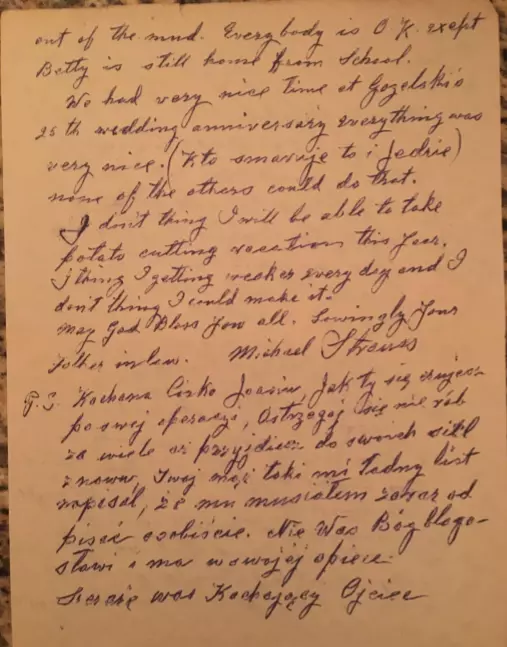 out of the mud. Everybody is O K. exept
Betty is still home from School.
We had very nice time at Gozelski's
25 th wedding anniversary everything was
very nice. (Kto smaruje to i Jedzie)
none of the others could do that.
I don't thing I will be able to take
potato cutting vacation this Year.
I thing I getting weaker every day and I
don't thing I could make it.
May God Bless You all. Lowingly Your
Father in law. Michael Strauss
P.S. Kochana Cirko Joasiu Jak ty się czujesz
po swej operacji, Ostrzegaj się nie rób
za wiele aż przyjdziesz do swoich sił
znowu, Twoj mąż taki mi ładny list
napisał, że mu musiałem zaraz od
pisać osobiście. Nie Was Bóg błogo-
sławi i ma w swojej opiece.
Was Kochający Ojciec